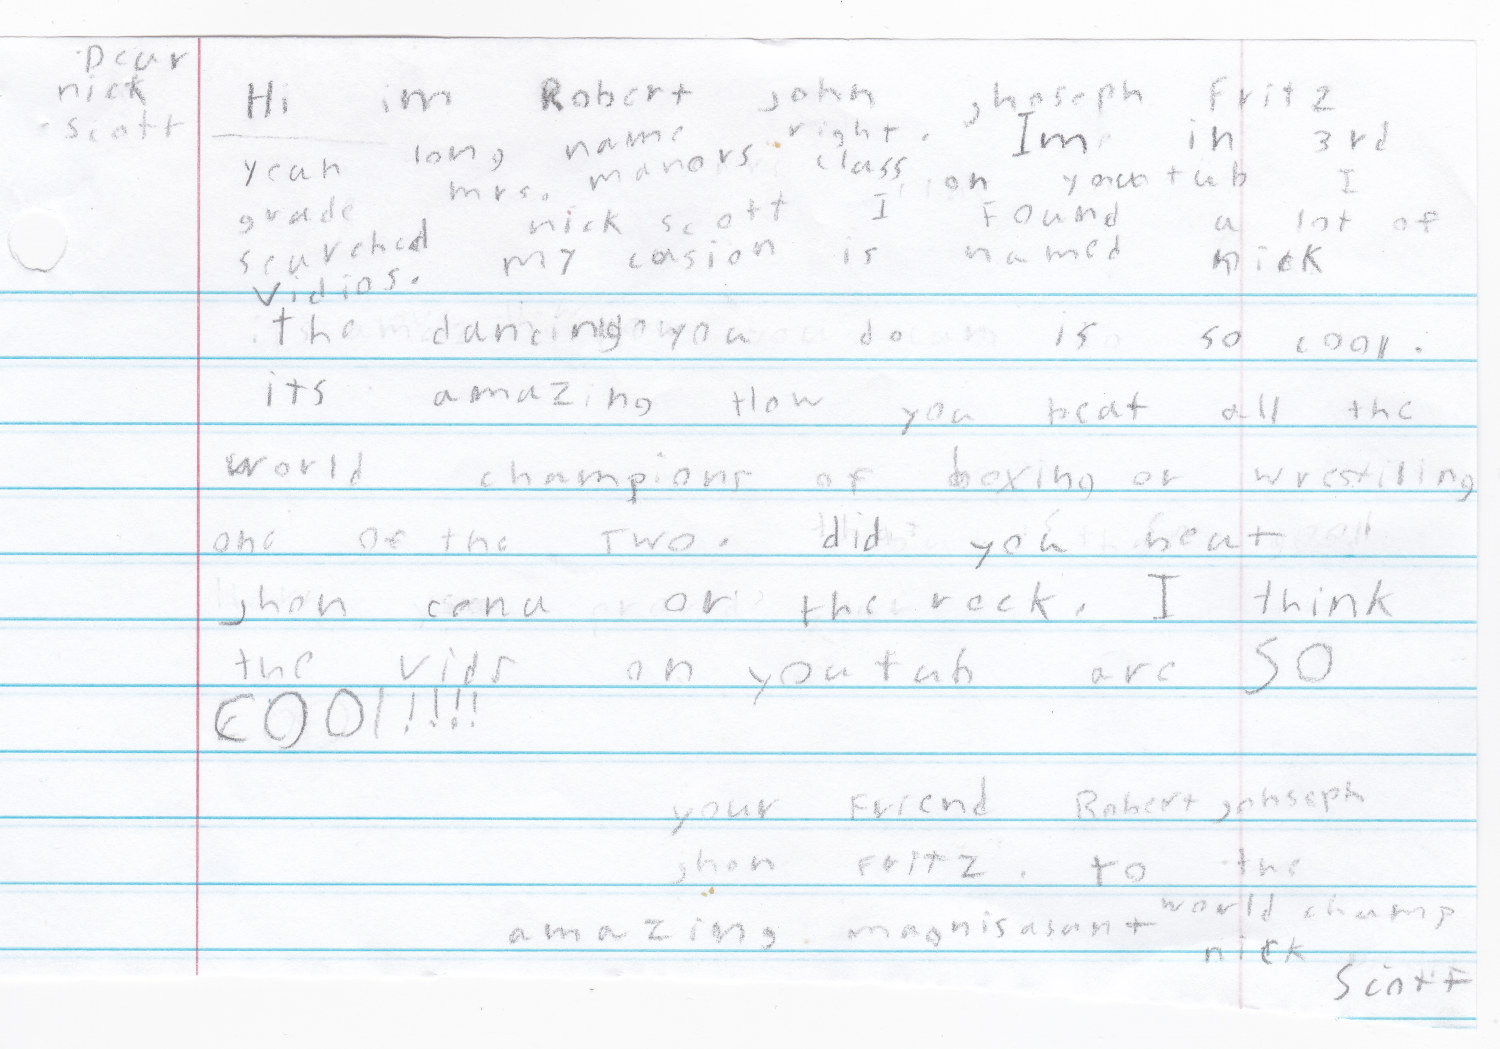 Dear
nick
scott
Hi im Robert john jhoseph Fritz
yeah long name right. Im in 3rd
grade mrs. manors class, on youtub I
searched nick scott I Found a lot of
vidios. my cosion is named nick
the dancing you do is so cool.
its amazing How you beat all the
world champions of boxing or wrestiling
one of the Two. did you beat
jhon cena or the rock. I think
the vids on youtub are SO
COOl!!!!
your Friend Robert johseph
jhon Fritz. to the
amazing magnisasant world champ
nick
Scott